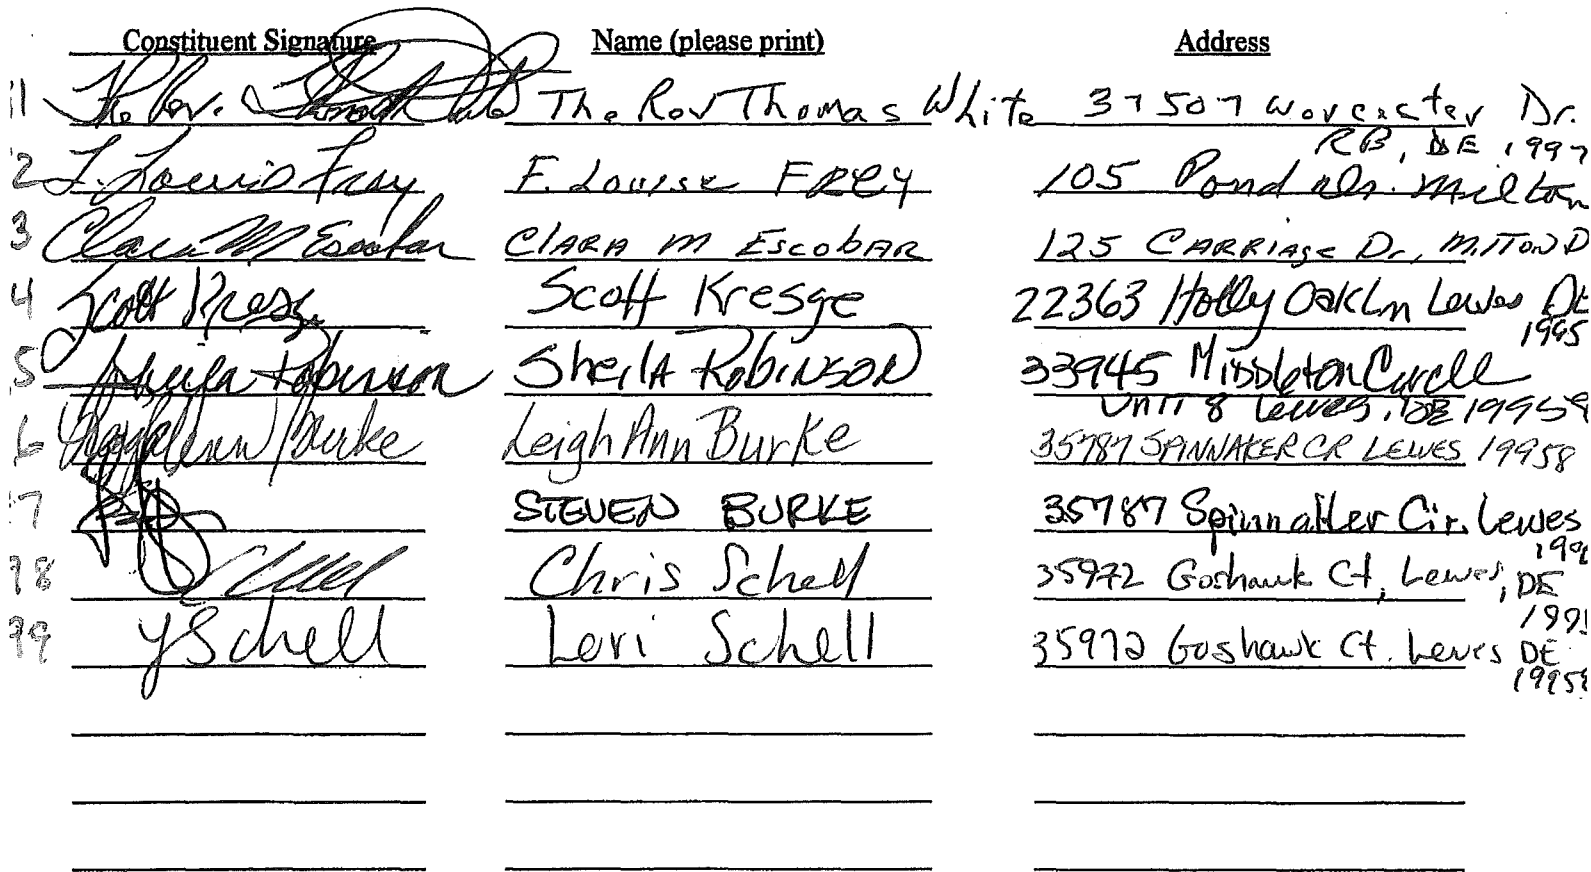 Constituent Signature Name (please print) Address
The Rev. Thomas White The Rev Thomas White 37507 Worcester Dr.
RB, DE 1997
2 F. Louise Frey F. Louise FREY 105 Pond Dr. Milton
3 Clara M Escobar CLARA M ESCOBAR 125 CARRIAGE Dr, MILTON D
4 Scott Kresge Scott Kresge 22363 Holly Oak Ln Lewes DE
1995
5 Sheila Robinson SheilA RobiNSON 33945 Middleton Circle
UNIT 8 Lewes, DE 19958
6 Leigh Ann Burke Leigh Ann Burke 35787 SPINNAKER CR LEWES 19958
7 STEVEN BURKE 35787 Spinnaker Cir. Lewes
78 Chris Schell 35972 Goshawk Ct, Lewes, DE
1995
79 Schell Lori Schell 35972 Goshawk Ct. Lewes DE
19958